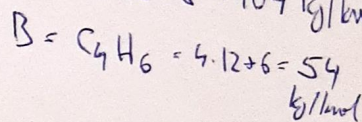 kg/km
B = C₄H₆ = 4.12+6 = 54
kg/kmol